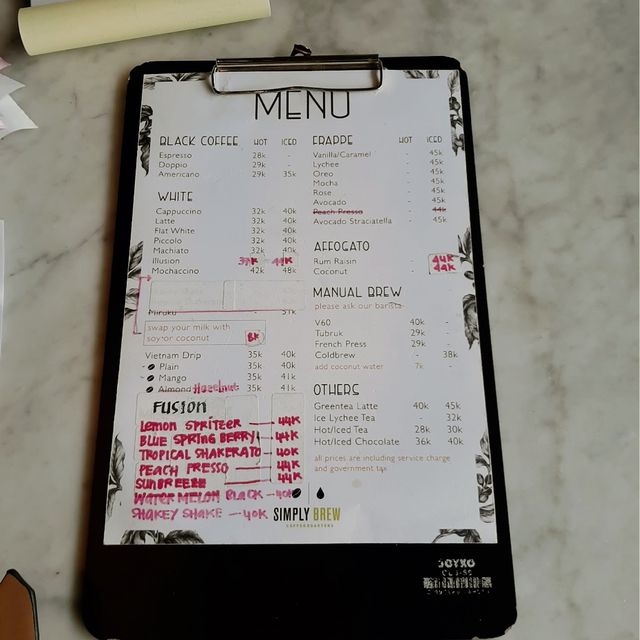 MENU
BLACK COFFEE HOT ICED
Espresso 28k -
Doppio 29k -
Americano 29k 35k
WHITE
Cappuccino 32k 40k
Latte 32k 40k
Flat White 32k 40k
Piccolo 32k 40k
Machiato 32k 40k
Illusion
Mochaccino 42k 48k
swap your milk with
soy or coconut 8k
Vietnam Drip 35k 40k
- Plain 35k 40k
- Mango 35k 41k
- Almond Hazelnut 35k 41k
FUSION
LEMON SPRITZER — 44K
BLUE SPRING BERRY — 44K
TROPICAL SHAKERATO — 40K
PEACH PRESSO — 44K
SUNBREEZE — 44K
WATER MELON BLACK — 40K
SHAKEY SHAKE — 40K
FRAPPE HOT ICED
Vanilla/Caramel - 45k
Lychee - 45k
Oreo - 45k
Mocha - 45k
Rose - 45k
Avocado - 45k
Peach Presso - 44k
Avocado Straciatella - 45k
AFFOGATO
Rum Raisin - 44K
Coconut - 44K
MANUAL BREW
please ask our barista
V60 40k -
Tubruk 29k -
French Press 29k -
Coldbrew - 38k
add coconut water 7k -
OTHERS
Greentea Latte 40k 45k
Ice Lychee Tea 32k
Hot/Iced Tea 28k 30k
Hot/Iced Chocolate 36k 40k
all prices are including service charge
and government tax
SIMPLY BREW
COFFEEROASTERS
JOYKO